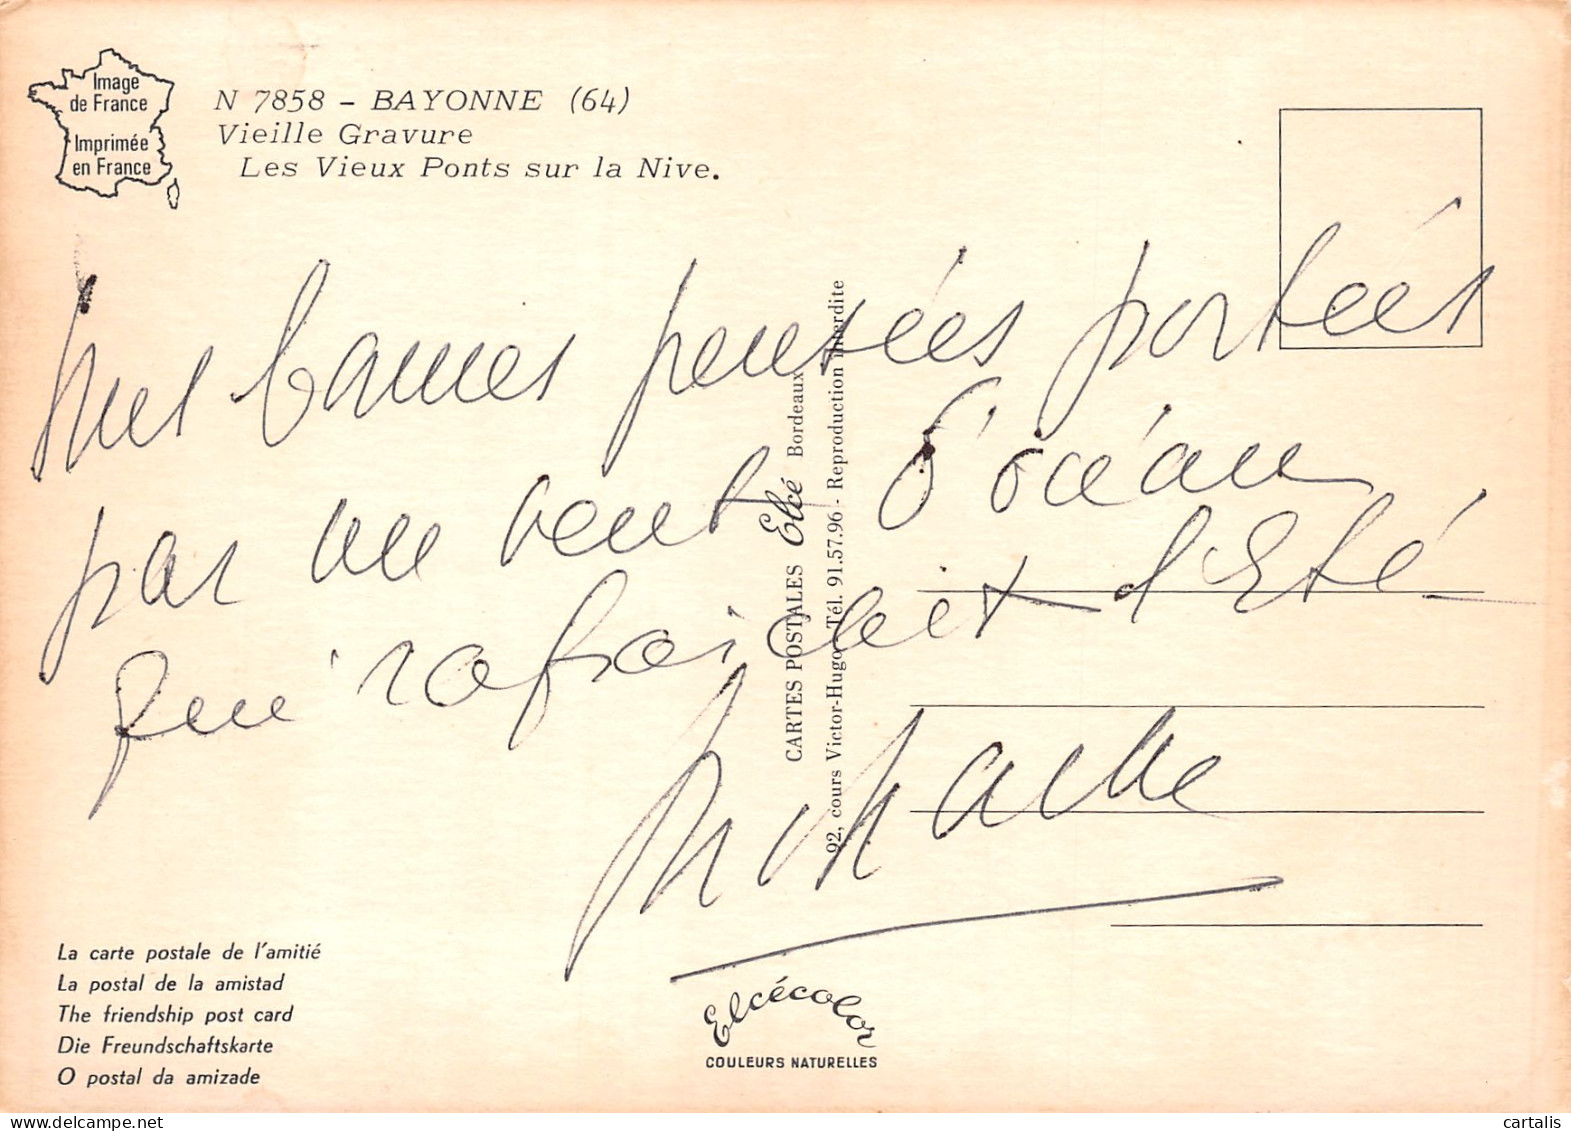 Image
de France
Imprimée
en France
N 7858 - BAYONNE (64)
Vieille Gravure
Les Vieux Ponts sur la Nive.
Mes bonnes pensées portées
par un vent d'océan
qui rafraichit l'Eté
CARTES POSTALES Elcé Bordeaux
92, cours Victor-Hugo - Tél. 91.57.96 - Reproduction interdite
La carte postale de l'amitié
La postal de la amistad
The friendship post card
Die Freundschaftskarte
O postal da amizade
Elcécolor
COULEURS NATURELLES
cartalis